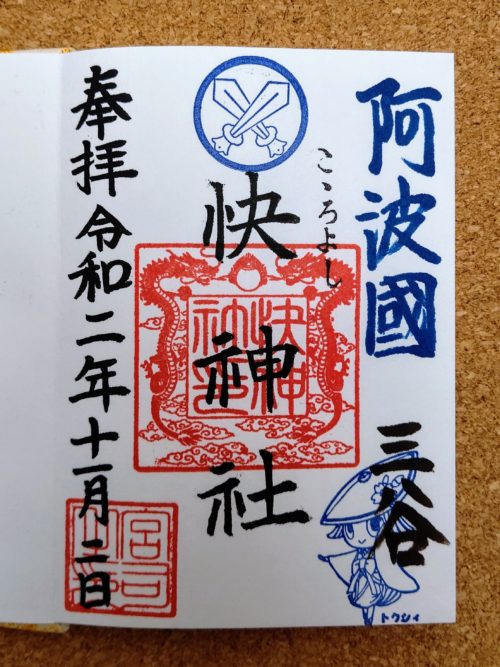 阿波國
三谷
こゝろよし
快神社
快神社印
奉拝令和二年十一月二日
宮司之印
トクシィ